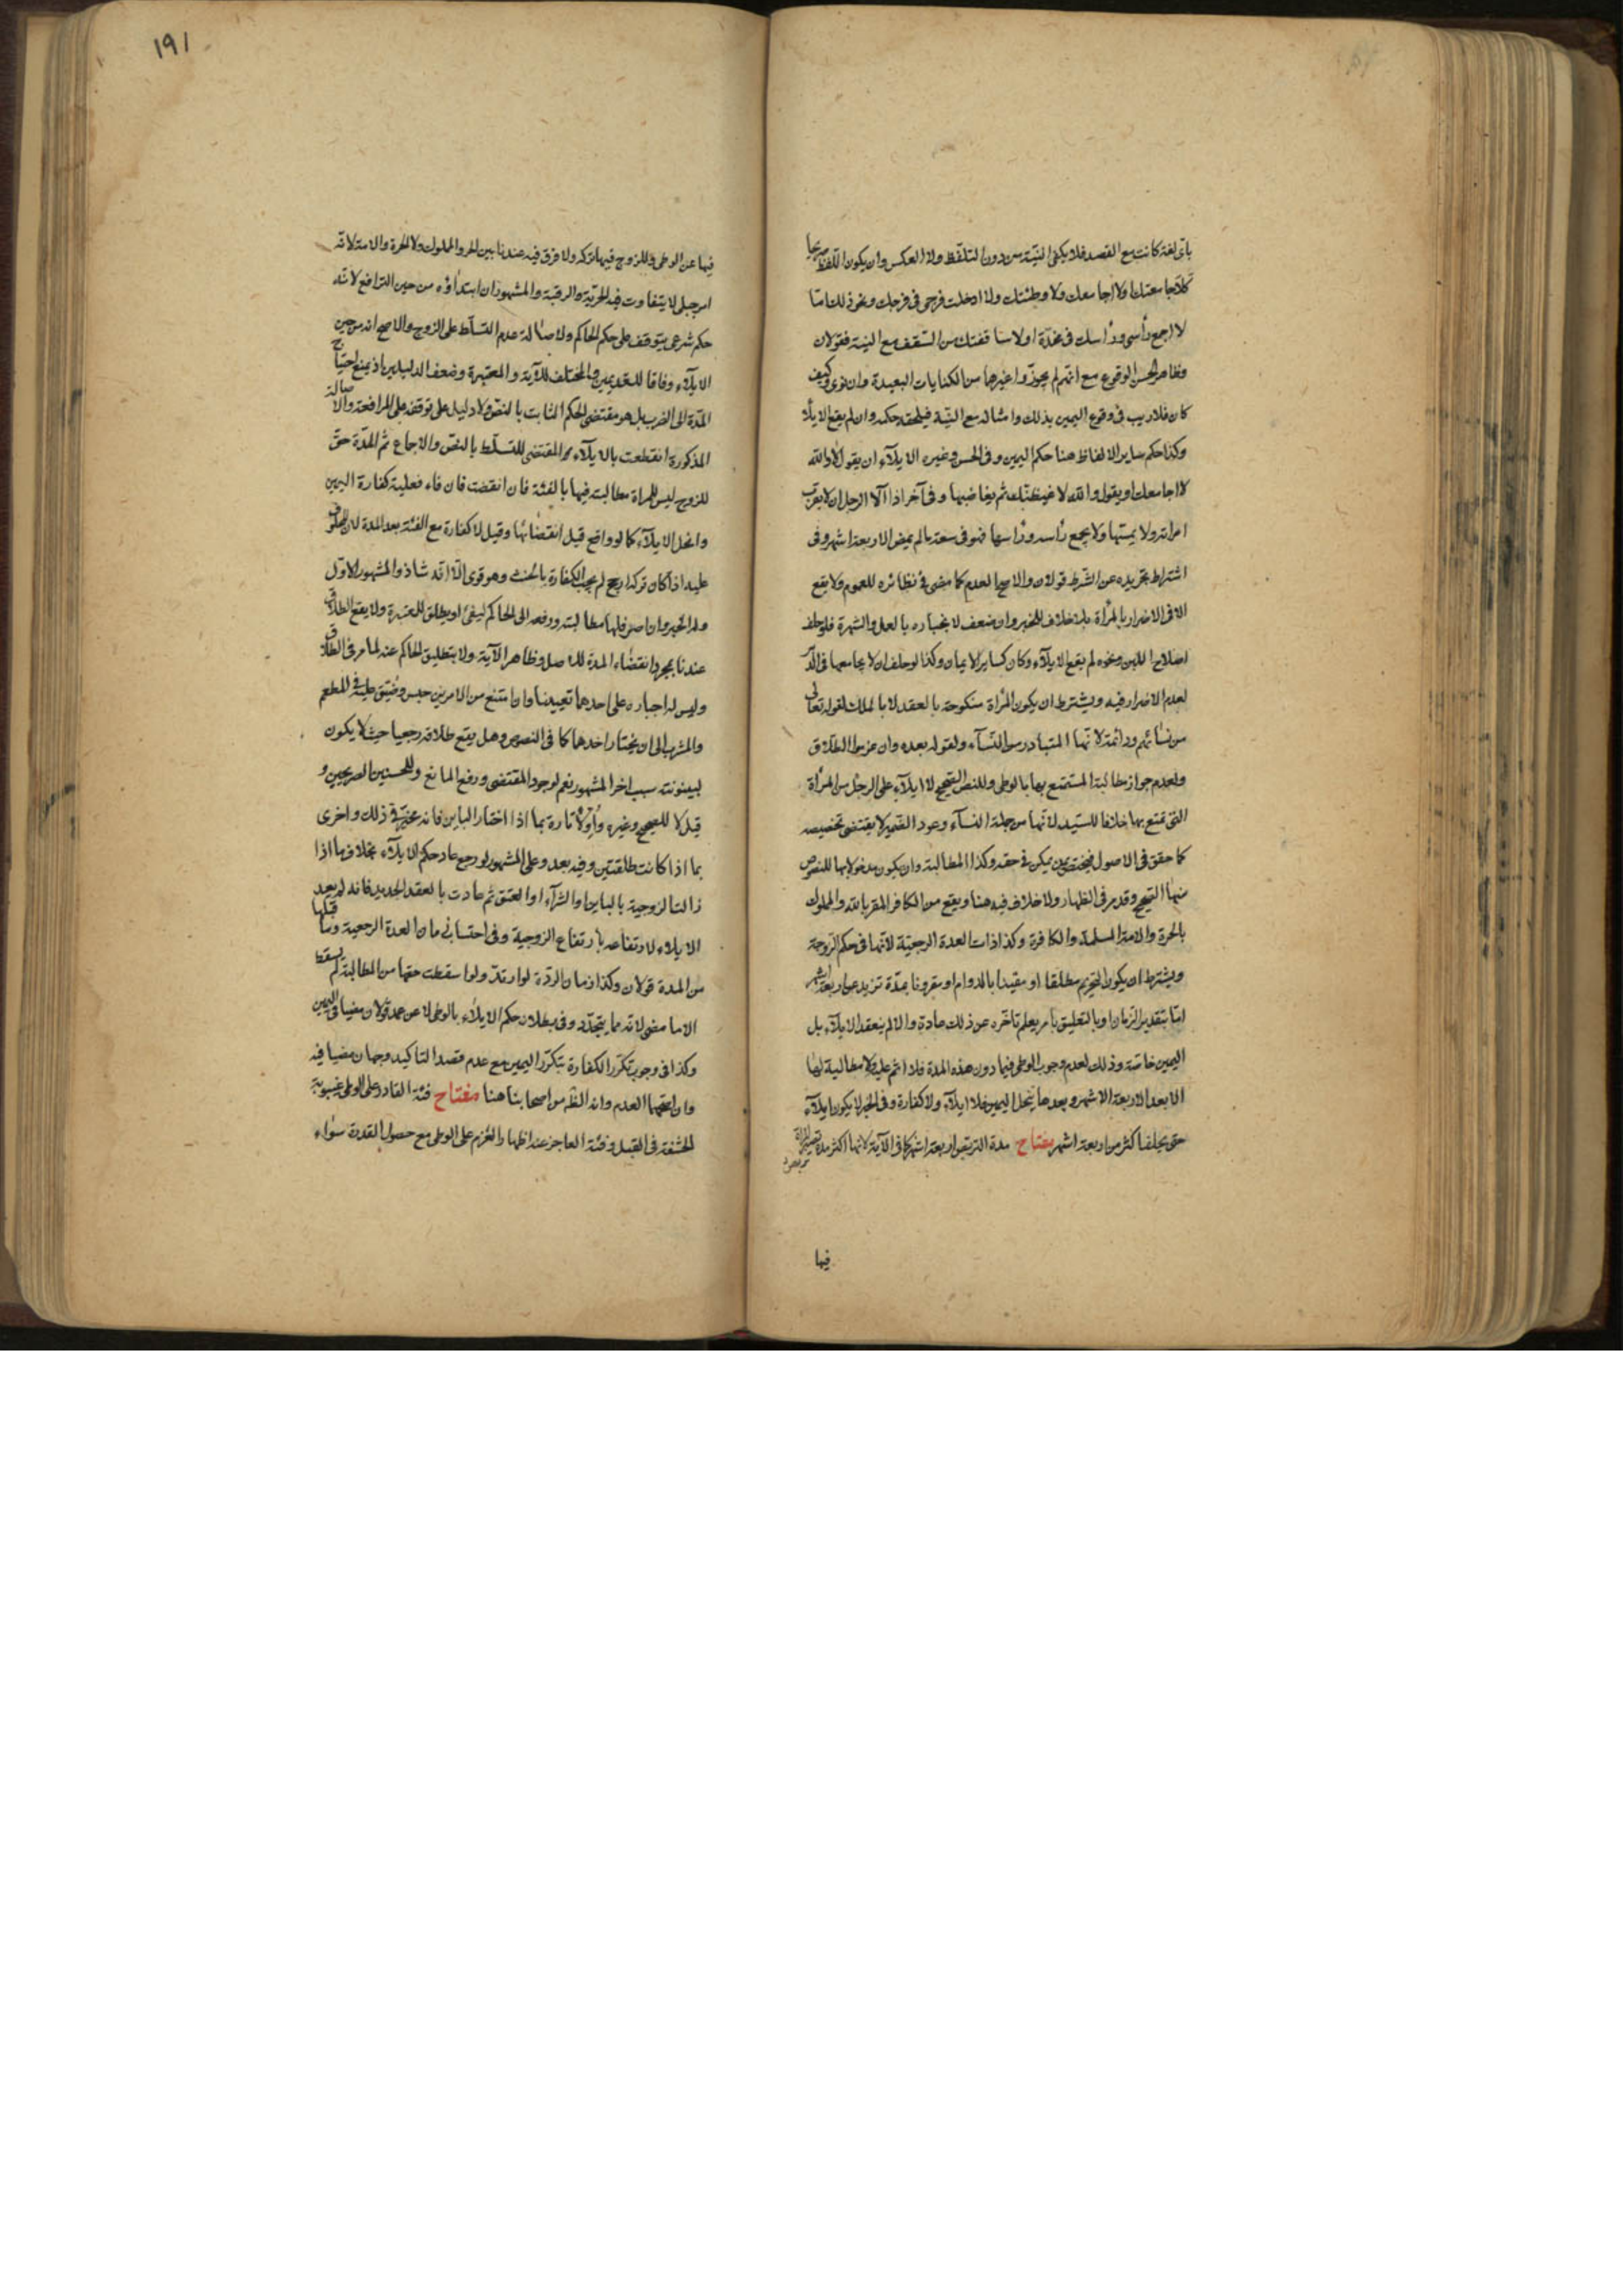 بأي لغة كانت مع القصد فلا يكفي النية من دون التلفظ ولا العكس وان يكون اللفظ صريحا
كلا جامعتك ولا اجامعك ولا وطئتك ولا ادخلت فرجى في فرجك ونحو ذلك اما
لا اجمع رأسى ورأسك في مخدة او لا ساقفتك من السقف مع النية فقولان
وظاهر الحسن الوقوع مع انهم لم يجوزوا غيرها من الكنايات البعيدة وان نوى وكيف
كان فلا ريب في وقوع اليمين بذلك وامثاله مع النية فيلحقه حكمه وان لم يقع الايلاء
وكذا حكم ساير الالفاظ هنا حكم اليمين وفى الحسن وغيره الايلاء ان يقول لا والله
لا اجامعك او يقول والله لا غيظنك ثم يغاضبها وفى آخر اذا آلا الرجل ان لا يقرب
امراته ولا يمسها ولا يجمع رأسه ورأسها فهو في سعة مالم يمض الاربعة اشهر وفى
اشتراط تجريده عن الشرط قولان والاصح العدم كما مضى في نظائره للعموم ولا يقع
الا في الاضرار بالمرأة بلا خلاف للخبر وان ضعف لانجباره بالعمل والشهرة فلو حلف
لصلاح اللبن ونحوه لم يقع الايلاء وكان كساير الايمان وكذا لو حلف ان لا يجامعها في الدبر
لعدم الاضرار فيه ويشترط ان يكون المرأة منكوحة بالعقد لا بالملك لقوله تعالى
من نسائهم ودائمة لانها المتبادر من النساء ولقوله بعده وان عزموا الطلاق
ولعدم جواز مطالبة المستمتع بها بالوطى وللنص الصحيح لا ايلاء على الرجل من المرأة
التي تمتع بها خلافا للسيد لانها من جملة النساء وعود الضمير لا يقتضى تخصيصه
كما حقق في الاصول فيختص بمن يمكن في حقه وكذا المطالبة وان يكون مدخولا بها للنصوص
منها الصحيح وقد مر في الظهار ولا خلاف فيه هنا ويقع من الكافر المقر بالله والمملوك
بالحرة والامة المسلمة والكافرة وكذا ذات العدة الرجعية لانها في حكم الزوجة
ويشترط ان يكون التحريم مطلقا او مقيدا بالدوام او مقرونا بمدة تزيد عن اربعة اشهر
اما بتقدير الزمان او بالتعليق بأمر يعلم تاخره عن ذلك عادة والا لم ينعقد الايلاء بل
اليمين خاصة وذلك لعدم وجوب الوطى فيما دون هذه المدة فلا اثم عليه ولا مطالبة لها
الا بعد الاربعة الاشهر وبعدها ينحل اليمين فلا ايلاء ولا كفارة وفى الخبر لا يكون ايلاء
حتى يحلف اكثر من اربعة اشهر مفتاح مدة التربص اربعة اشهر كما في الآية لانها اكثر مدة تصبر المرأة
فيها
١٩١
فيها عن الوطى وللزوج فيها تركه ولا فرق فيه عندنا بين الحر والمملوك ولا الحرة والامة لانه
امر جبلى لا يتفاوت فيه الحرية والرقية والمشهور ان ابتداؤه من حين الترافع لانه
حكم شرعى يتوقف على حكم الحاكم ولاصالة عدم التسلط على الزوج والاصح انه من حين
الايلاء وفاقا للقديمين والمختلف للآية والمعتبرة وضعف الدليلين اذ يمنع احتياج
المدة الى الضرب بل هو مقتضى الحكم الثابت بالنص ولا دليل على توقفه على المرافعة والاصالة
المذكورة انقطعت بالايلاء المقتضى للتسلط بالنص والاجماع ثم المدة حق
للزوج ليس للمراة مطالبته فيها بالفئة فان انقضت فان فاء فعليه كفارة اليمين
وانحل الايلاء كما لو واقع قبل انقضائها وقيل لا كفارة مع الفئة بعد المدة لان المحلوف
عليه اذا كان تركه ارجح لم يجب الكفارة بالحنث وهو قوى الا انه شاذ والمشهور الاول
وله الخبر وان صبر فلها مطالبته ورفعه الى الحاكم ليفئ او يطلق للمعتبرة ولا يقع الطلاق
عندنا بمجرد انقضاء المدة للاصل وظاهر الآية ولا بتطليق الحاكم عنه لما مر في الطلاق
وليس له اجباره على احدهما تعيينا وان امتنع من الامرين حبس وضيق عليه في المطعم
والمشرب الى ان يختار احدهما كما في النصوص وهل يقع طلاقه رجعيا حيث لا يكون
لبينونته سبب اخر المشهور نعم لوجود المقتضى ورفع المانع وللحسنين الصريحين و
قيل لا للصحيح وغيره وأولا تارة بما اذا اختار الباين فانه مخير في ذلك واخرى
بما اذا كانت طلقتين وفيه بعد وعلى المشهور لو رجع عاد حكم الايلاء بخلاف ما اذا
زالت الزوجية بالباين او الشراء او العتق ثم عادت بالعقد الجديد فانه لم يعد
الايلاء لارتفاعه بارتفاع الزوجية وفى احتساب زمان العدة الرجعية وما قبلها
من المدة قولان وكذا زمان الردة لو ارتد ولو اسقطت حقها من المطالبة لم يسقط
الا ما مضى لانه مما يتجدد وفى بطلان حكم الايلاء بالوطى لا عن عمد قولان مضيا في اليمين
وكذا في وجوب تكرر الكفارة بتكرر اليمين مع عدم قصد التاكيد وجهان مضيا فيه
وان اصحهما العدم وانه الظ من اصحابنا هنا مفتاح فئة القادر على الوطى غيبوبة
الحشفة في القبل وفئة العاجز عنه اظهار العزم على الوطى مع حصول القدرة سواء